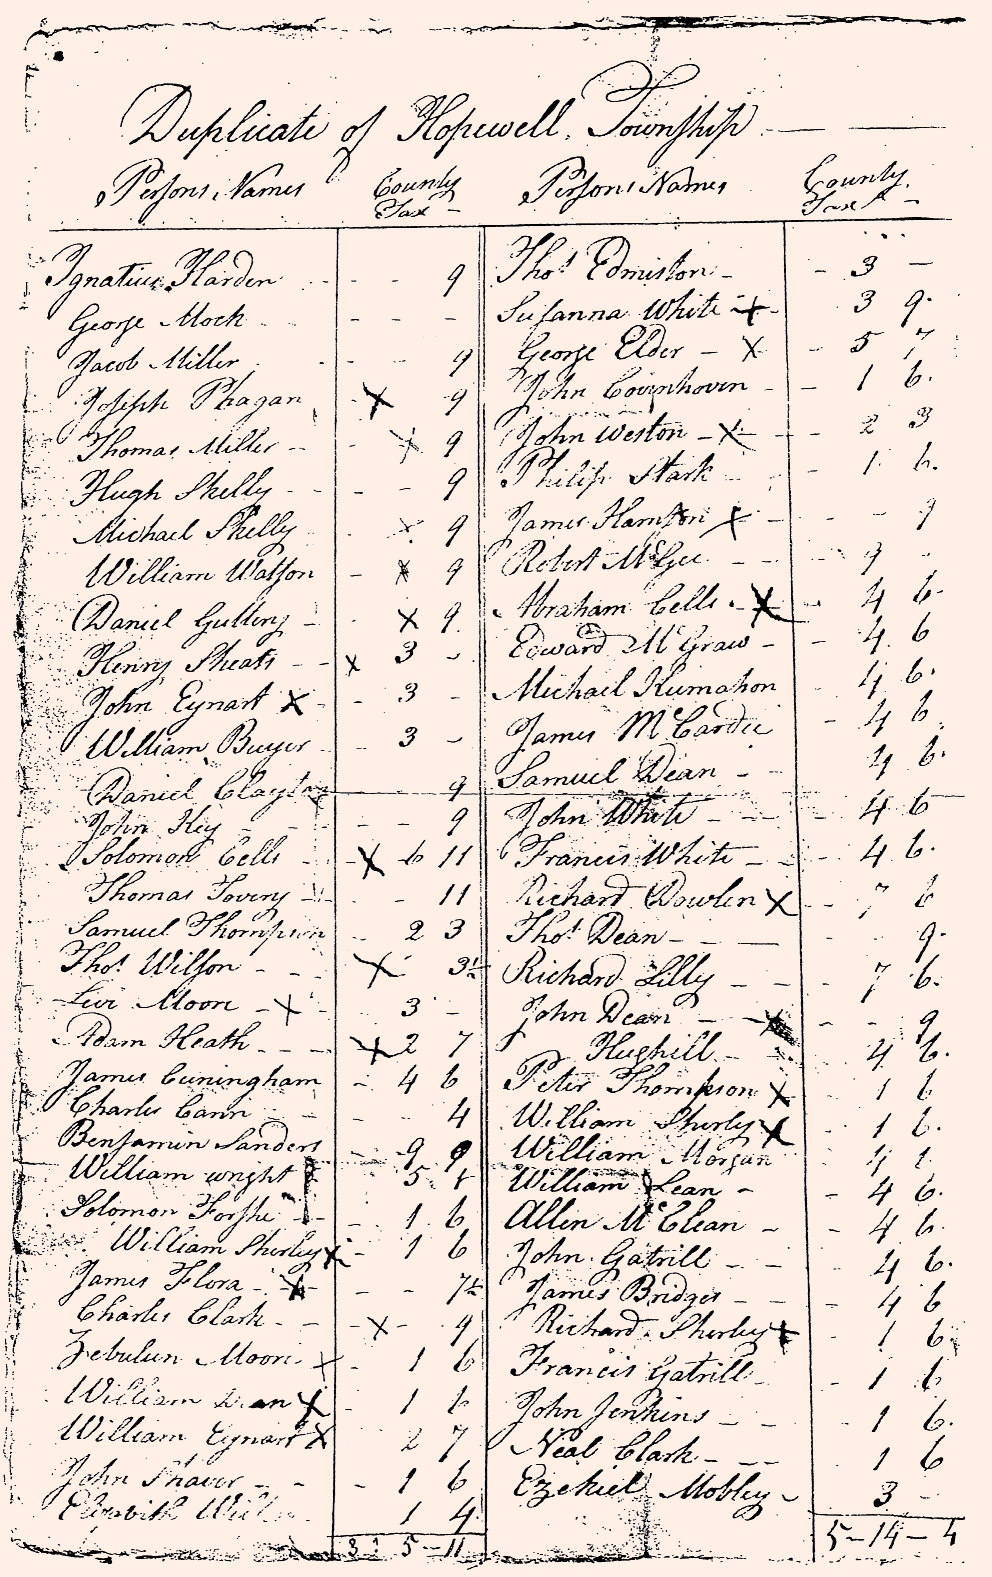 Duplicate of Hopewell Township
Persons Names County Tax Persons Names County Tax
Ignatius Harden - - 9
George Mock - - -
Jacob Miller - - 9
Joseph Phagan - X 9
Thomas Miller - X 9
Hugh Skelly - - 9
Michael Skelly X 9
William Watson - X 9
Daniel Gutteny - X 9
Henry Sheats - - X 3 -
John Eynart X - 3 -
William Buyer - 3 -
Daniel Clayton 9
John Key - - - 9
Solomon Cells - X 6 11
Thomas Tovery - - 11
Samuel Thompson - 2 3
Thos Wilson - - X 3½
Levi Moon - X - 3 -
Adam Heath - - - X 2 7
James Cuningham - 4 6
Charles Cann - - 4
Benjamin Sanders - 9 9
William wright 5
Solomon Forshe - 1 6
William Shirley X - 1 6
James Flora - X - - 7½
Charles Clark - - X - 9
Zebulun Moon X - 1 6
William X - 1 6
William Eynart X 2 7
John Shaver - - - 1 6
1 4
3 : 5 - 11
Thos Edmiston - - 3 -
Susanna White X - 3 9
George Elder - X - 5 7
John Covenhoven - - 1 6
John Weston - X - - 2 3
Philip Stark - 1 6
James Hamton X - - - 9
Robert McGee - - - 9 -
Abraham Cells - X - 4 6
Edward McGraw - - 4 6
Michael Kumahon 4 6
James McCardie - 4 6
Samuel Dean - 4 6
John White - - - 4 6
Francis White - - - 4 6
Richard Dowlen X - 7 6
Thos Dean - - - 9
Richard Lilly - - - 7 6
John Dean - - X - - 9
Hughill - 4 6
Peter Thompson X 1 6
William Shirley X - 1 6
William Morgan 4
William Lean - - 4 6
Allen McClean - - 4 6
John Gatrill - - 4 6
James Bridges - - - 4 6
Richard Shirley X - 1 6
Francis Gatrill - - 1 6
John Jenkins - - - 1 6
Neal Clark - - - 1 6
Ezekiel Mobley - 3 -
5 - 14 - 4